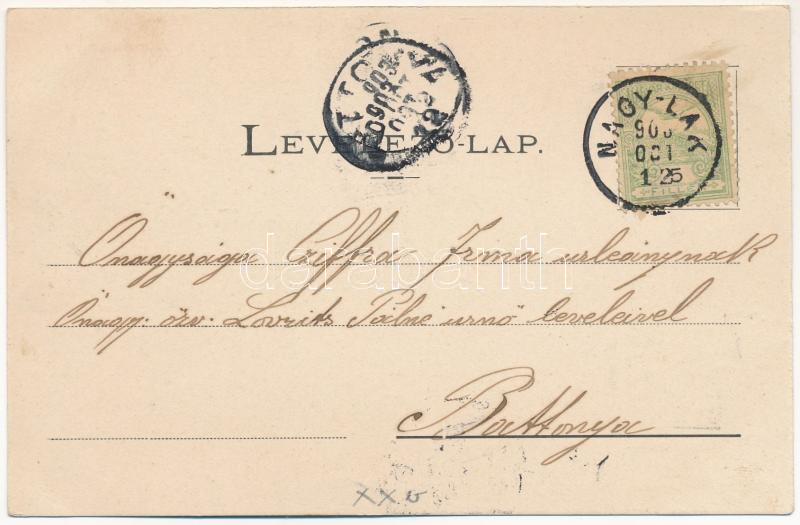 LEVELEZŐ-LAP.
NAGY-LAK
906
OCT
FILL
Őnagysága Cziffra Irma urleánynak
Őnagy. özv. Lovrits Pálné urnő leveleivel
Battonya
darabanth
XX